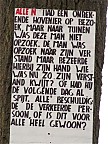 ALLE'N HAD EEN ONDEUGENDE HOVENIER OP BEZOEK, MAAR NAAR TUINEN WAS DEZE MAN NIET OPZOEK. DE MAN WAS OPZOEK NAAR ZIJN VERSTAND MAAR BEZEERDE HIERBIJ ZIJN HAND. WIE WAS NU ZO ZIJN VERSTAND KWIJT? OF HAD HIJ DE VOLGENDE DAG AL SPIJT. "ALLE" BESCHULDIGDE DE VERKEERDE PERSOON, OF IS DIT VOOR ALLE HEEL GEWOON?